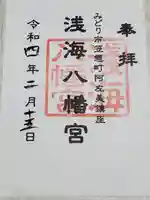 奉拝
みどり市笠懸町阿左美鎮座
浅海八幡宮
令和四年二月十五日